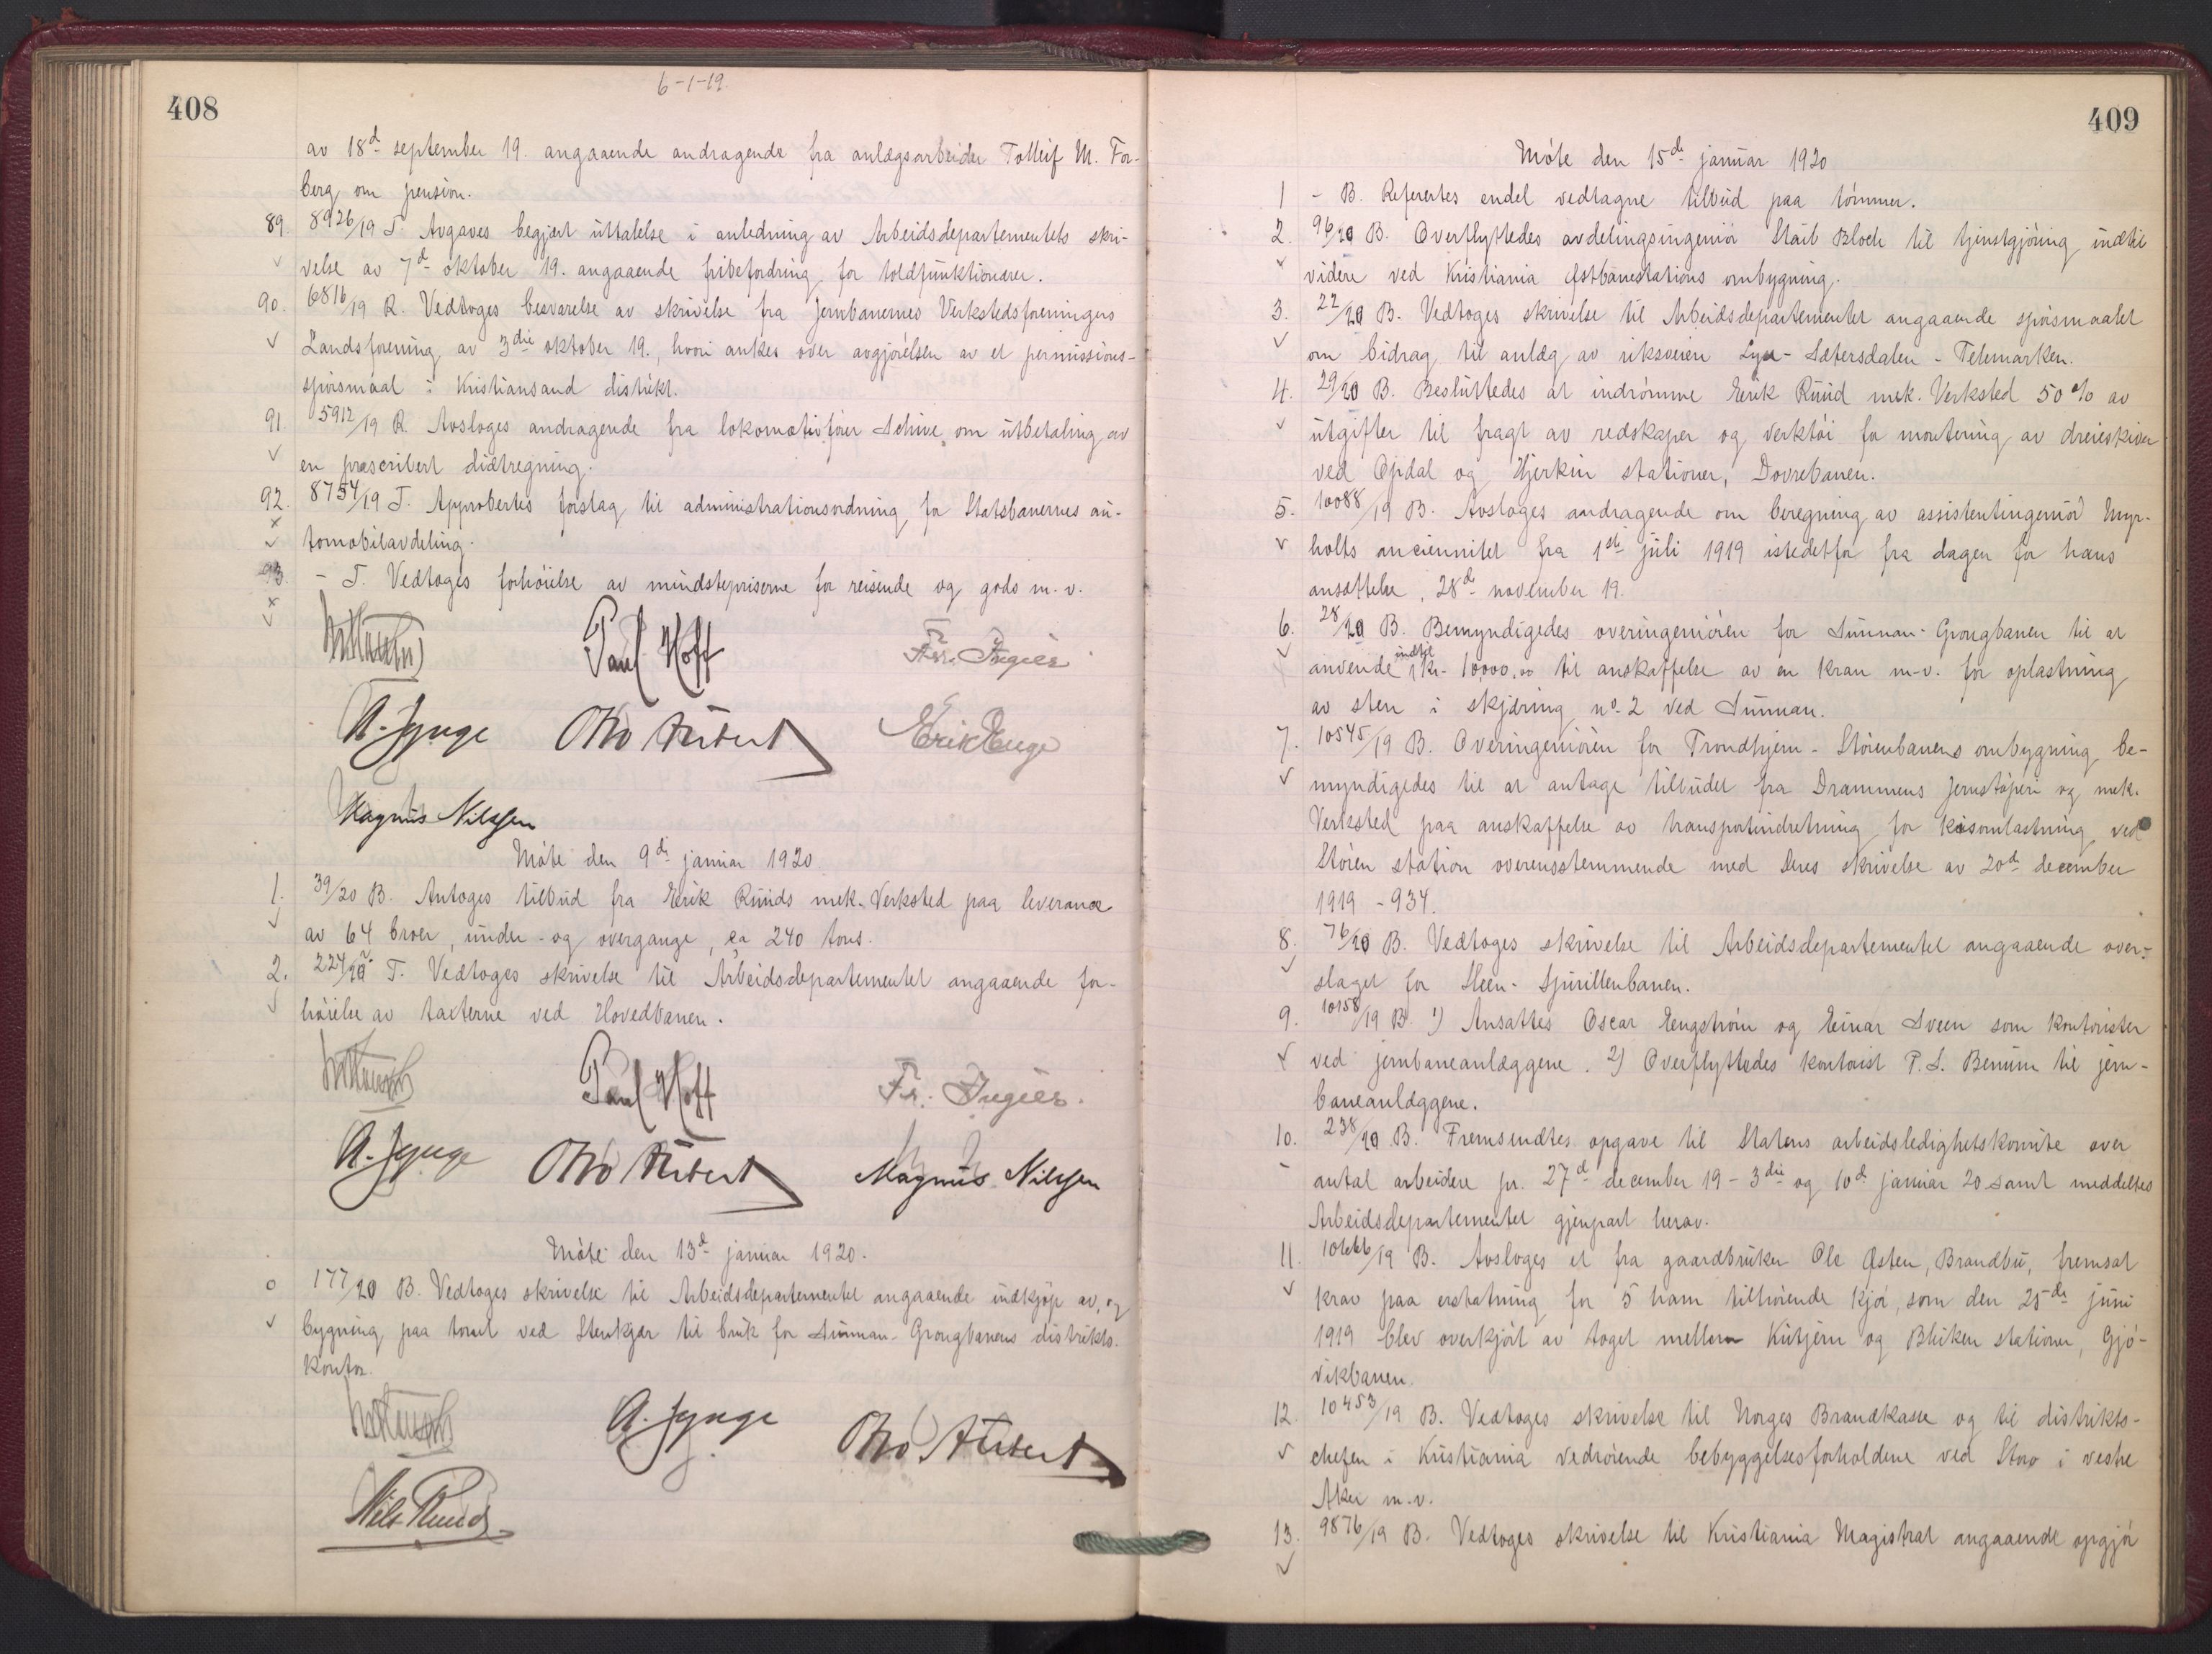 408
6-1-19.
av 18d september 19. angaaende andragende fra anlægsarbeider Tolleif M. For-
berg om pension.
89. 8926/19 T. Avgaves begjært uttalelse i anledning av Arbeidsdepartementets skri-
velse av 7d oktober 19. angaaende fribefordring for toldfunktionærer.
90. 6816/19 R. Vedtoges besvarelse av skrivelse fra Jernbanernes Verkstedsforeningers
Landsforening av 3die oktober 19., hvori ankes over avgjørelsen av et permissions-
spørsmaal i Kristiansand distrikt.
91. 5912/19 R. Avsloges andragende fra lokomotivfører Schive om utbetaling av
en præscribert diætregning.
92. 8754/19 T. Approbertes forslag til administrationsordning for Statsbanernes au-
tomobilavdeling.
93. - T. Vedtoges forhøielse av mindstepriserne for reisende og gods m.v.
Paul Hoff
Fr. Ingier
A. Jynge
Otto Aubert
Erik Enge
Magnus Nilssen
Møte den 9de januar 1920
1. 39/20 B. Antoges tilbud fra Erik Ruuds mek. Verksted paa leverance
av 64 broer, under- og overgange, ca 240 tons.
2. 224/20 T. Vedtoges skrivelse til Arbeidsdepartementet angaaende for-
høielse av taxterne ved Hovedbanen.
Paul Hoff
Fr. Ingier.
A. Jynge
Otto Aubert
Magnus Nilssen
Møte den 13d januar 1920.
177/20 B. Vedtoges skrivelse til Arbeidsdepartementet angaaende indkjøp av, og
bygning paa tomt ved Stenkjær til bruk for Sunnan-Grongbanens distrikts-
kontor.
A. Jynge
Otto Aubert
Nils Ruud
409
Møte den 15de januar 1920
1 - B. Refereres endel vedtagne tilbud paa tømmer.
2. 96/20 B. Overflyttedes avdelingsingeniør Staib Bloch til tjenstgjøring indtil
videre ved Kristiania Østbanestations ombygning.
3. 22/20 B. Vedtoges skrivelse til Arbeidsdepartementet angaaende spørsmaalet
om bidrag til anlæg av riksveien Lyse-Sætersdalen-Telemarken.
4. 29/20 B. Besluttedes at indrømme Erik Ruud mek. Verksted 50% av
utgifter til fragt av redskaper og verktøi for montering av dreieskiver
ved Opdal og Hjerkin stationer, Dovrebanen.
5. 10088/19 B. Avsloges andragende om beregning av assistentingeniør Myr-
holts anciennitet fra 1ste juli 1919 istedetfor fra dagen for hans
ansættelse, 28d november 19.
6. 28/20 B. Bemyndigedes overingeniøren for Sunnan-Grongbanen til at
anvende indtil kr. 10,000,00 til anskaffelse av en kran m.v. for oplastning
av sten i skjæring no. 2 ved Sunnan.
7. 10545/19 B. Overingeniøren for Trondhjem-Størenbanens ombygning be-
myndigedes til at antage tilbudet fra Drammens Jernstøperi og mek.
Verksted paa anskaffelse av transportindretning for kisomlastning ved
Støren station overensstemmende med deres skrivelse av 20de december
1919 - 934.
8. 76/20 B. Vedtoges skrivelse til Arbeidsdepartementet angaaende over-
slaget for Steen-Spirillenbanen.
9. 10158/19 B. 1) Ansattes Oscar Engstrøm og Einar Sveen som kontorister
ved jernbaneanlæggene. 2) Overflyttedes kontorist P. S. Benum til jern-
baneanlæggene.
10. 238/20 B. Fremsendtes opgave til Statens arbeidsledighetskomite over
antal arbeidere pr. 27d december 19 - 3die og 10de januar 20 samt meddeltes
Arbeidsdepartementet gjenpart herav.
11. 10666/19 B. Avsloges et fra gaardbruker Ole Østen, Brandbu, fremsat
krav paa erstatning for 5 ham tilhørende kjør, som den 25de juni
1919 blev overkjørt av toget mellem Kutjern og Bleiken stationer, Gjø-
vikbanen.
12. 10453/19 B. Vedtoges skrivelse til Norges Brandkasse og til distrikts-
chefen i Kristiania vedrørende bebyggelsesforholdene ved Storo i vestre
Aker m.v.
13. 9876/19 B. Vedtoges skrivelse til Kristiania Magistrat angaaende opgjør